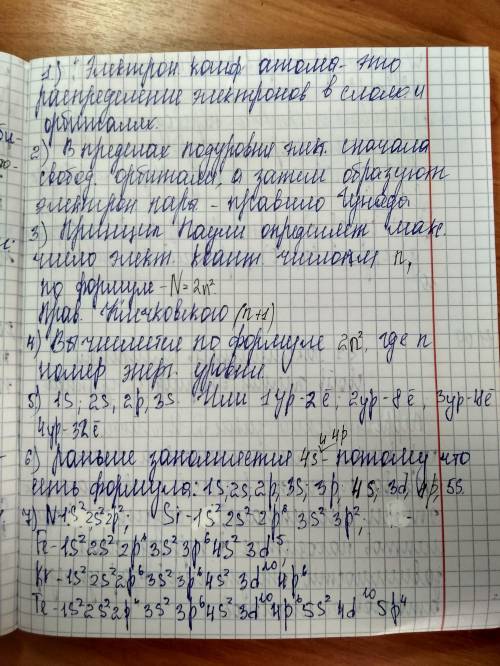 1) Электрон конф атома - это
распределение электронов в слоях и
орбиталях.
2) В пределах подуровня элек. сначала
свобод орбитали, а затем образуют
электрон пары - правило Гунда
3) Принцип Паули определяет мак.
число элект. квант числом n,
по формуле - N = 2n²
Прав. Клечковского (n+1)
4) Вычисляется по формуле 2n², где n
номер энерг. уровня
5) 1S; 2S, 2p, 3S Или 1ур-2ē; 2ур-8ē,
4ур-32ē
6) Раньше заполняется 4S - потому что
есть формула: 1S; 2S; 2p; 3S; 3p; 4S; 3d; 4p, 5S.
7) N-1S²2S²2p²; Si-1S²2S²2p⁶ 3S²3p²,
Fe-1S²2S²2p⁶3S²3p⁶4S²3d⁵
Kr-1S²2S²2p⁶3S²3p⁶4S²3d¹⁰4p⁶
Te-1S²2S²2p⁶3S²3p⁶4S²3d¹⁰4p⁶5S²4d¹⁰5p⁴